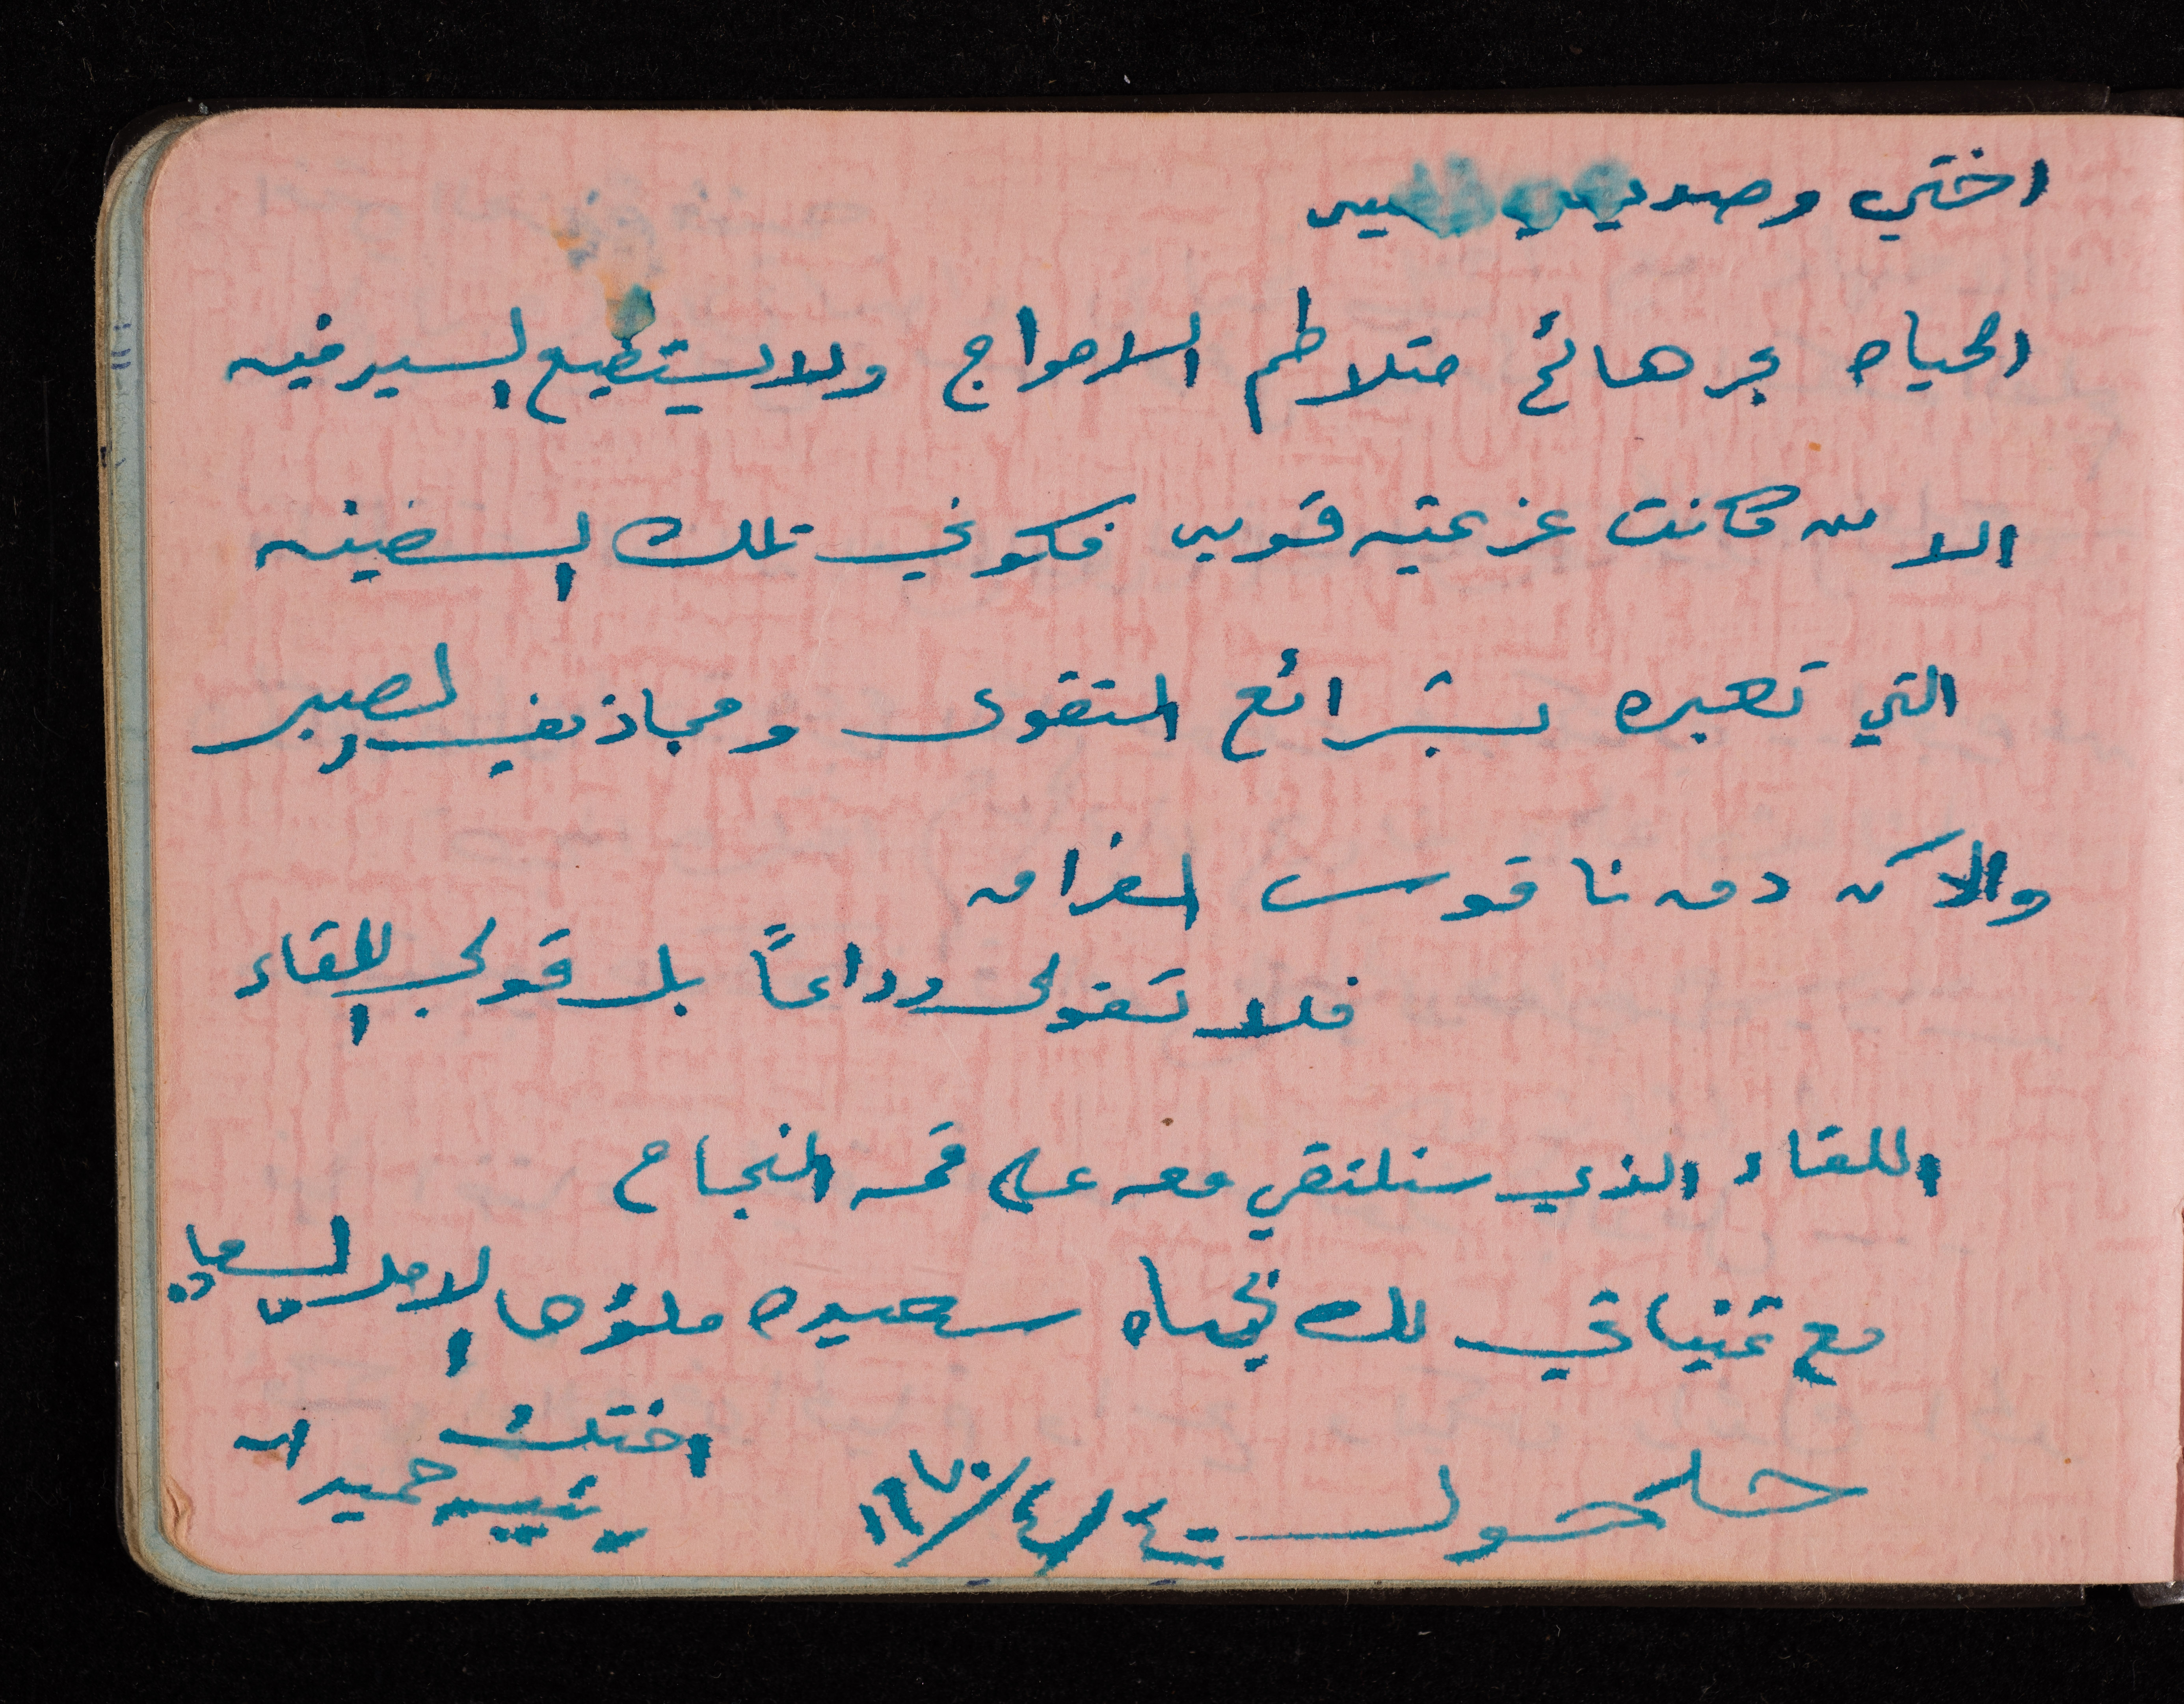 اختي وصديقتي
الحياه بحر هائج متلاطم الامواج ولا يستطيع السير فيه
الا من كانت عزيمته قويه فكوني تلك السفينه
التي تعبره بشرائع التقوى ومجاذيف الصبر
والآن دق ناقوس الفراق
فلا تقولي وداعاً بل قولي اللقاء
اللقاء الذي سنلتقي معه على قمه النجاح
مع تمنياتي لك بحياه سعيده ملؤها الامل السامي
اختك
حلحول ١٩٧٠/٤/